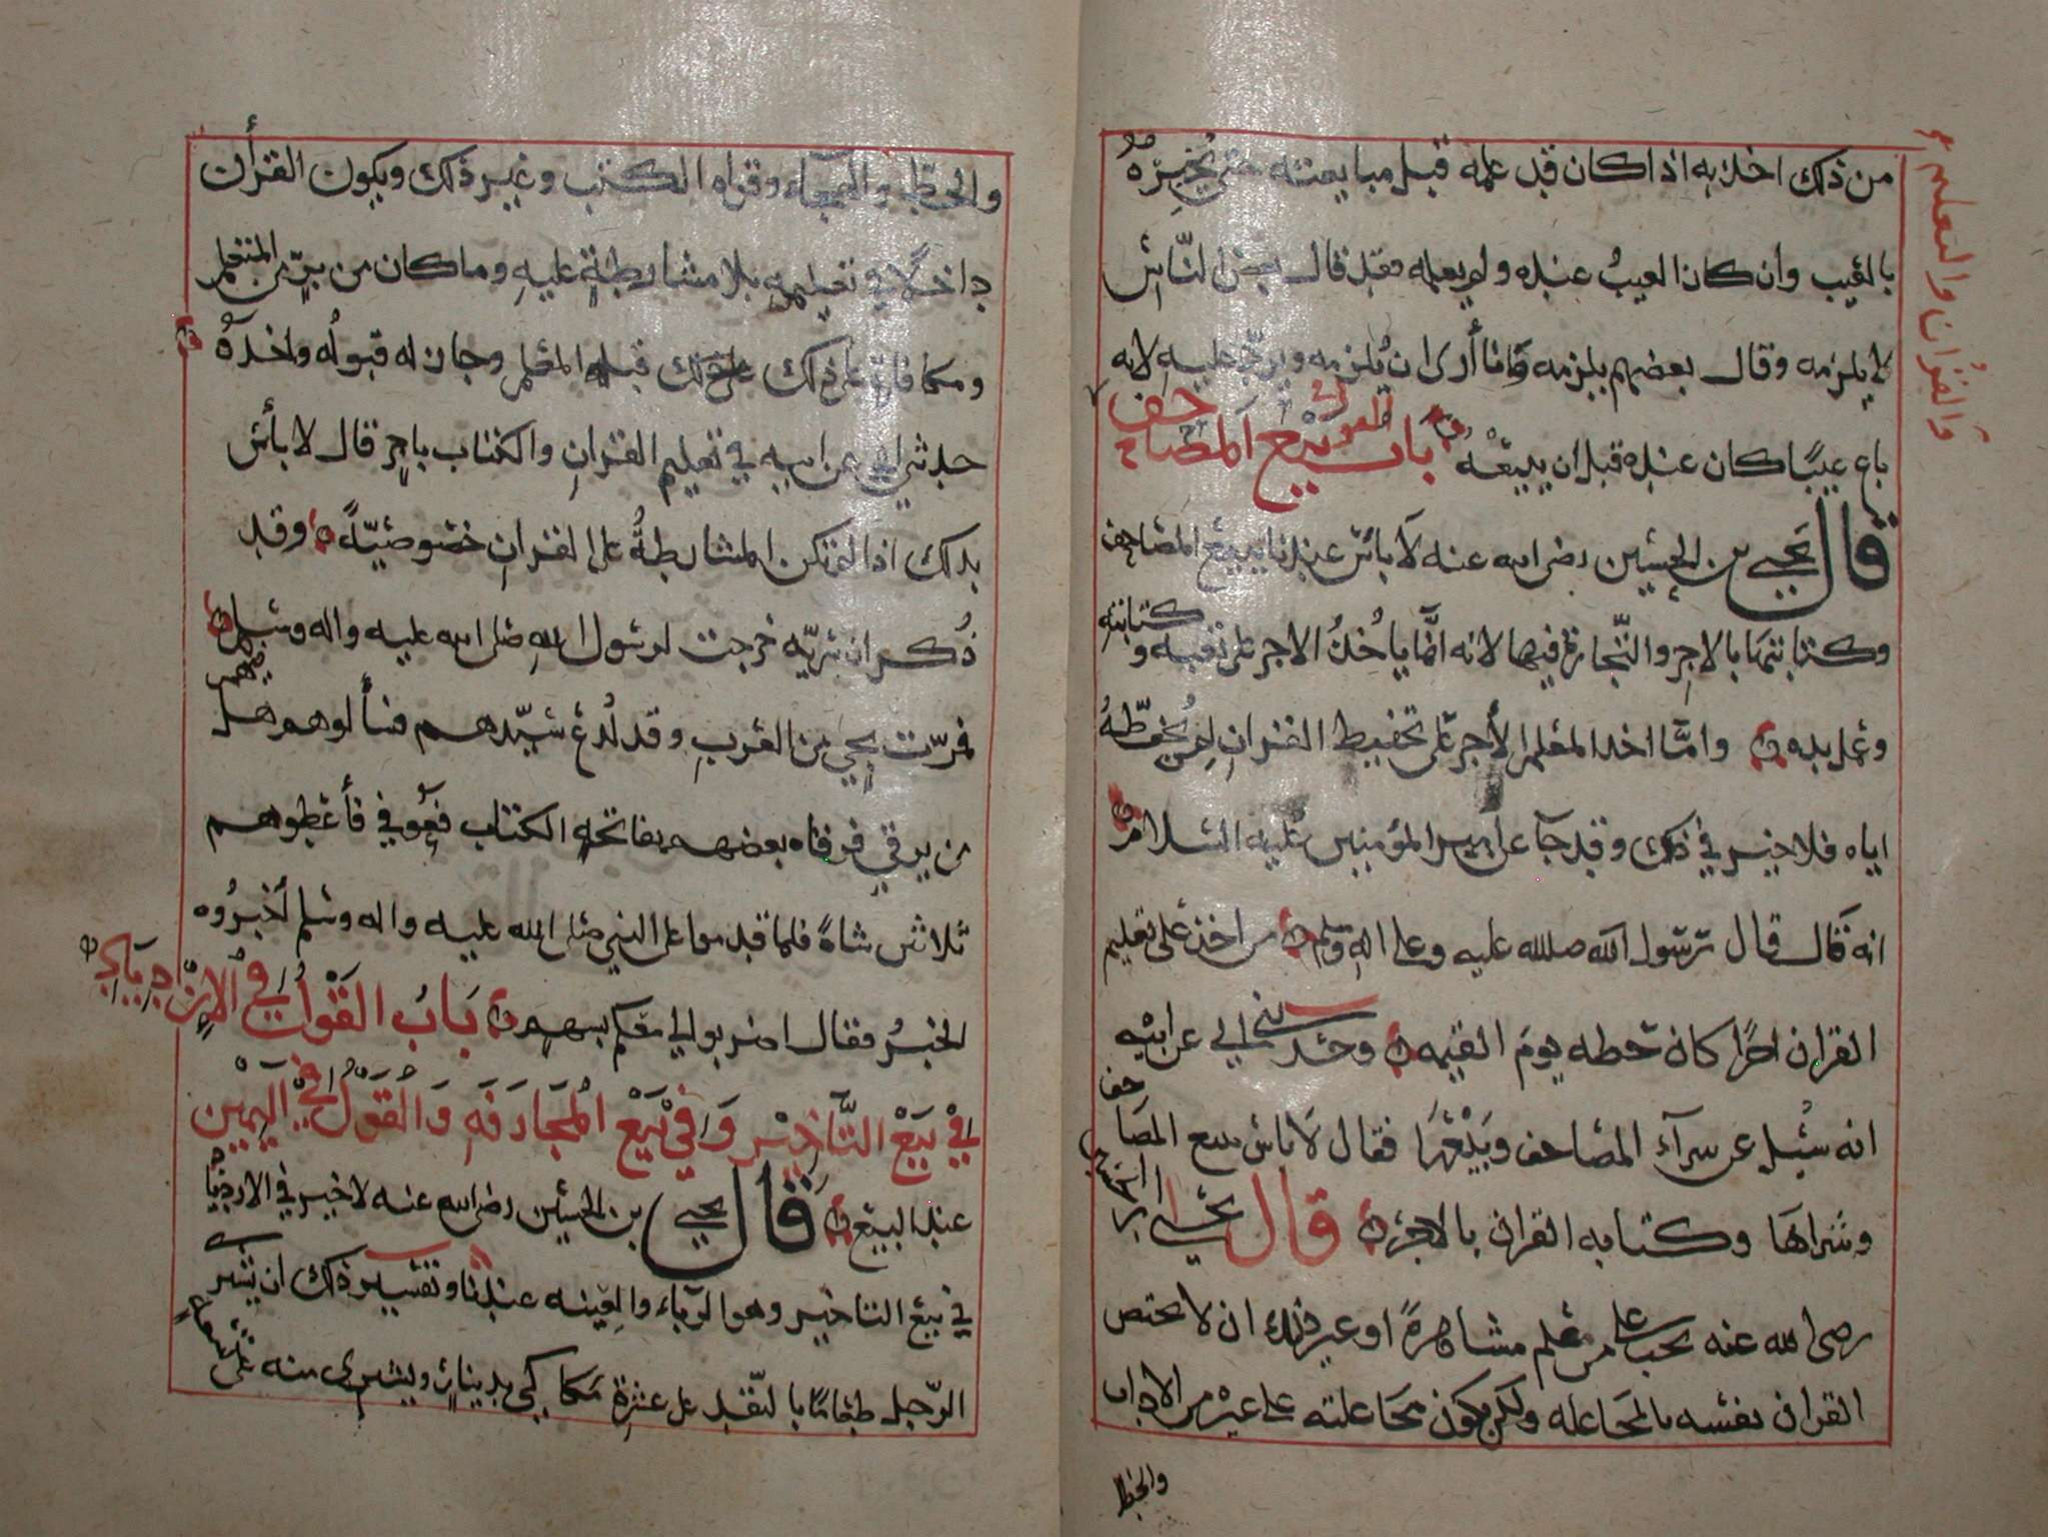 من ذلك اخذ به اذا كان قد علمه قبل مبايعته حتى يُخبِرَهُ
بالعيب وان كان العيبُ عنده ولم يعلمه فقد قال بعض النّاس
لا يلزمه وقال بعضهم يلزمه وانا أرى ان يُلزمه ويردّ عليه لانه
باع عيبًا كان عنده قبل ان يبيعَهُ باب بيع المصاحف
والقرآن والتعليم
قال يحيى بن الحسين رضى الله عنه لا بأس عندنا ببيع المصاحف
وكتابتها بالاجر والتّجارة فيها لانه انّما ياخُذُ الاجر على تعبه وكتابته
وعمل يده وامّا اخذ المعلم الأجر على تحفيظ القران لمن يحفّظهُ
اياه فلا خير في ذلك وقد جآ عن امير المؤمنين عليه السلام
انه قال قال رسول الله صلى الله عليه وعلى اله وسلم من اخذ على تعليم
القران اجرًا كان حظه يوم القيمه وحدثني ابي عن ابيه
انه سُئِل عن شرآء المصاحف وبيعها فقال لا باس ببيع المصاحف
وشراها وكتابه القران بالاجر قال يحيى بن الحسين
رضى الله عنه يجب على من علم مشاهرةً او غير ذلك ان لا يختص
القران نفسه بالمجاعله ولكن يكون مجاعلته على غيره من الاداب
والخط
والخطّ والهجآء وقراه الكتب وغير ذلك ويكون القرأن
داخلًا في تعليمه بلا مشارطةٍ عليه وما كان من برٍّ من المتعلم
ومكافاةٍ على ذلك قبله المعلم وجاز له قبولُه واخذهُ
حدثني ابي عن ابيه في تعليم القران والكتاب باجر قال لا بأس
بذلك اذا لم تكن المشارطةُ على القران خصوصيّةً وقد
ذُكر ان سَريّه خرجت لرسول الله صلى الله عليه واله وسلم
فمرّت بحيٍّ من العرب وقد لُدغ سيّدهم فسألوهم هل فيهم
من يرقي فرقاه بعضهم بفاتحه الكتاب فعُوفي فأعطوهم
ثلاثين شاةً فلما قدموا على النبي صلى الله عليه واله وسلم أخبرُوه
الخبرُ فقال اضربوا لي معكم بسهم بَابُ القَوْل في الازدياد
في بَيْع التَّأخير وَفي بَيْع المُجَازَفَهِ وَالقَوْل في اليَمين
عند البيع قال يحيى بن الحسين رضى الله عنه لا خير في الازدياد
في بيع التاخير وهو الرّباء والعِينه عندنا وتفسير ذلك ان يشتري
الرّجل طعامًا بالنّقد على عشرة مكاكي بدينار ويشترى منه على تسعه